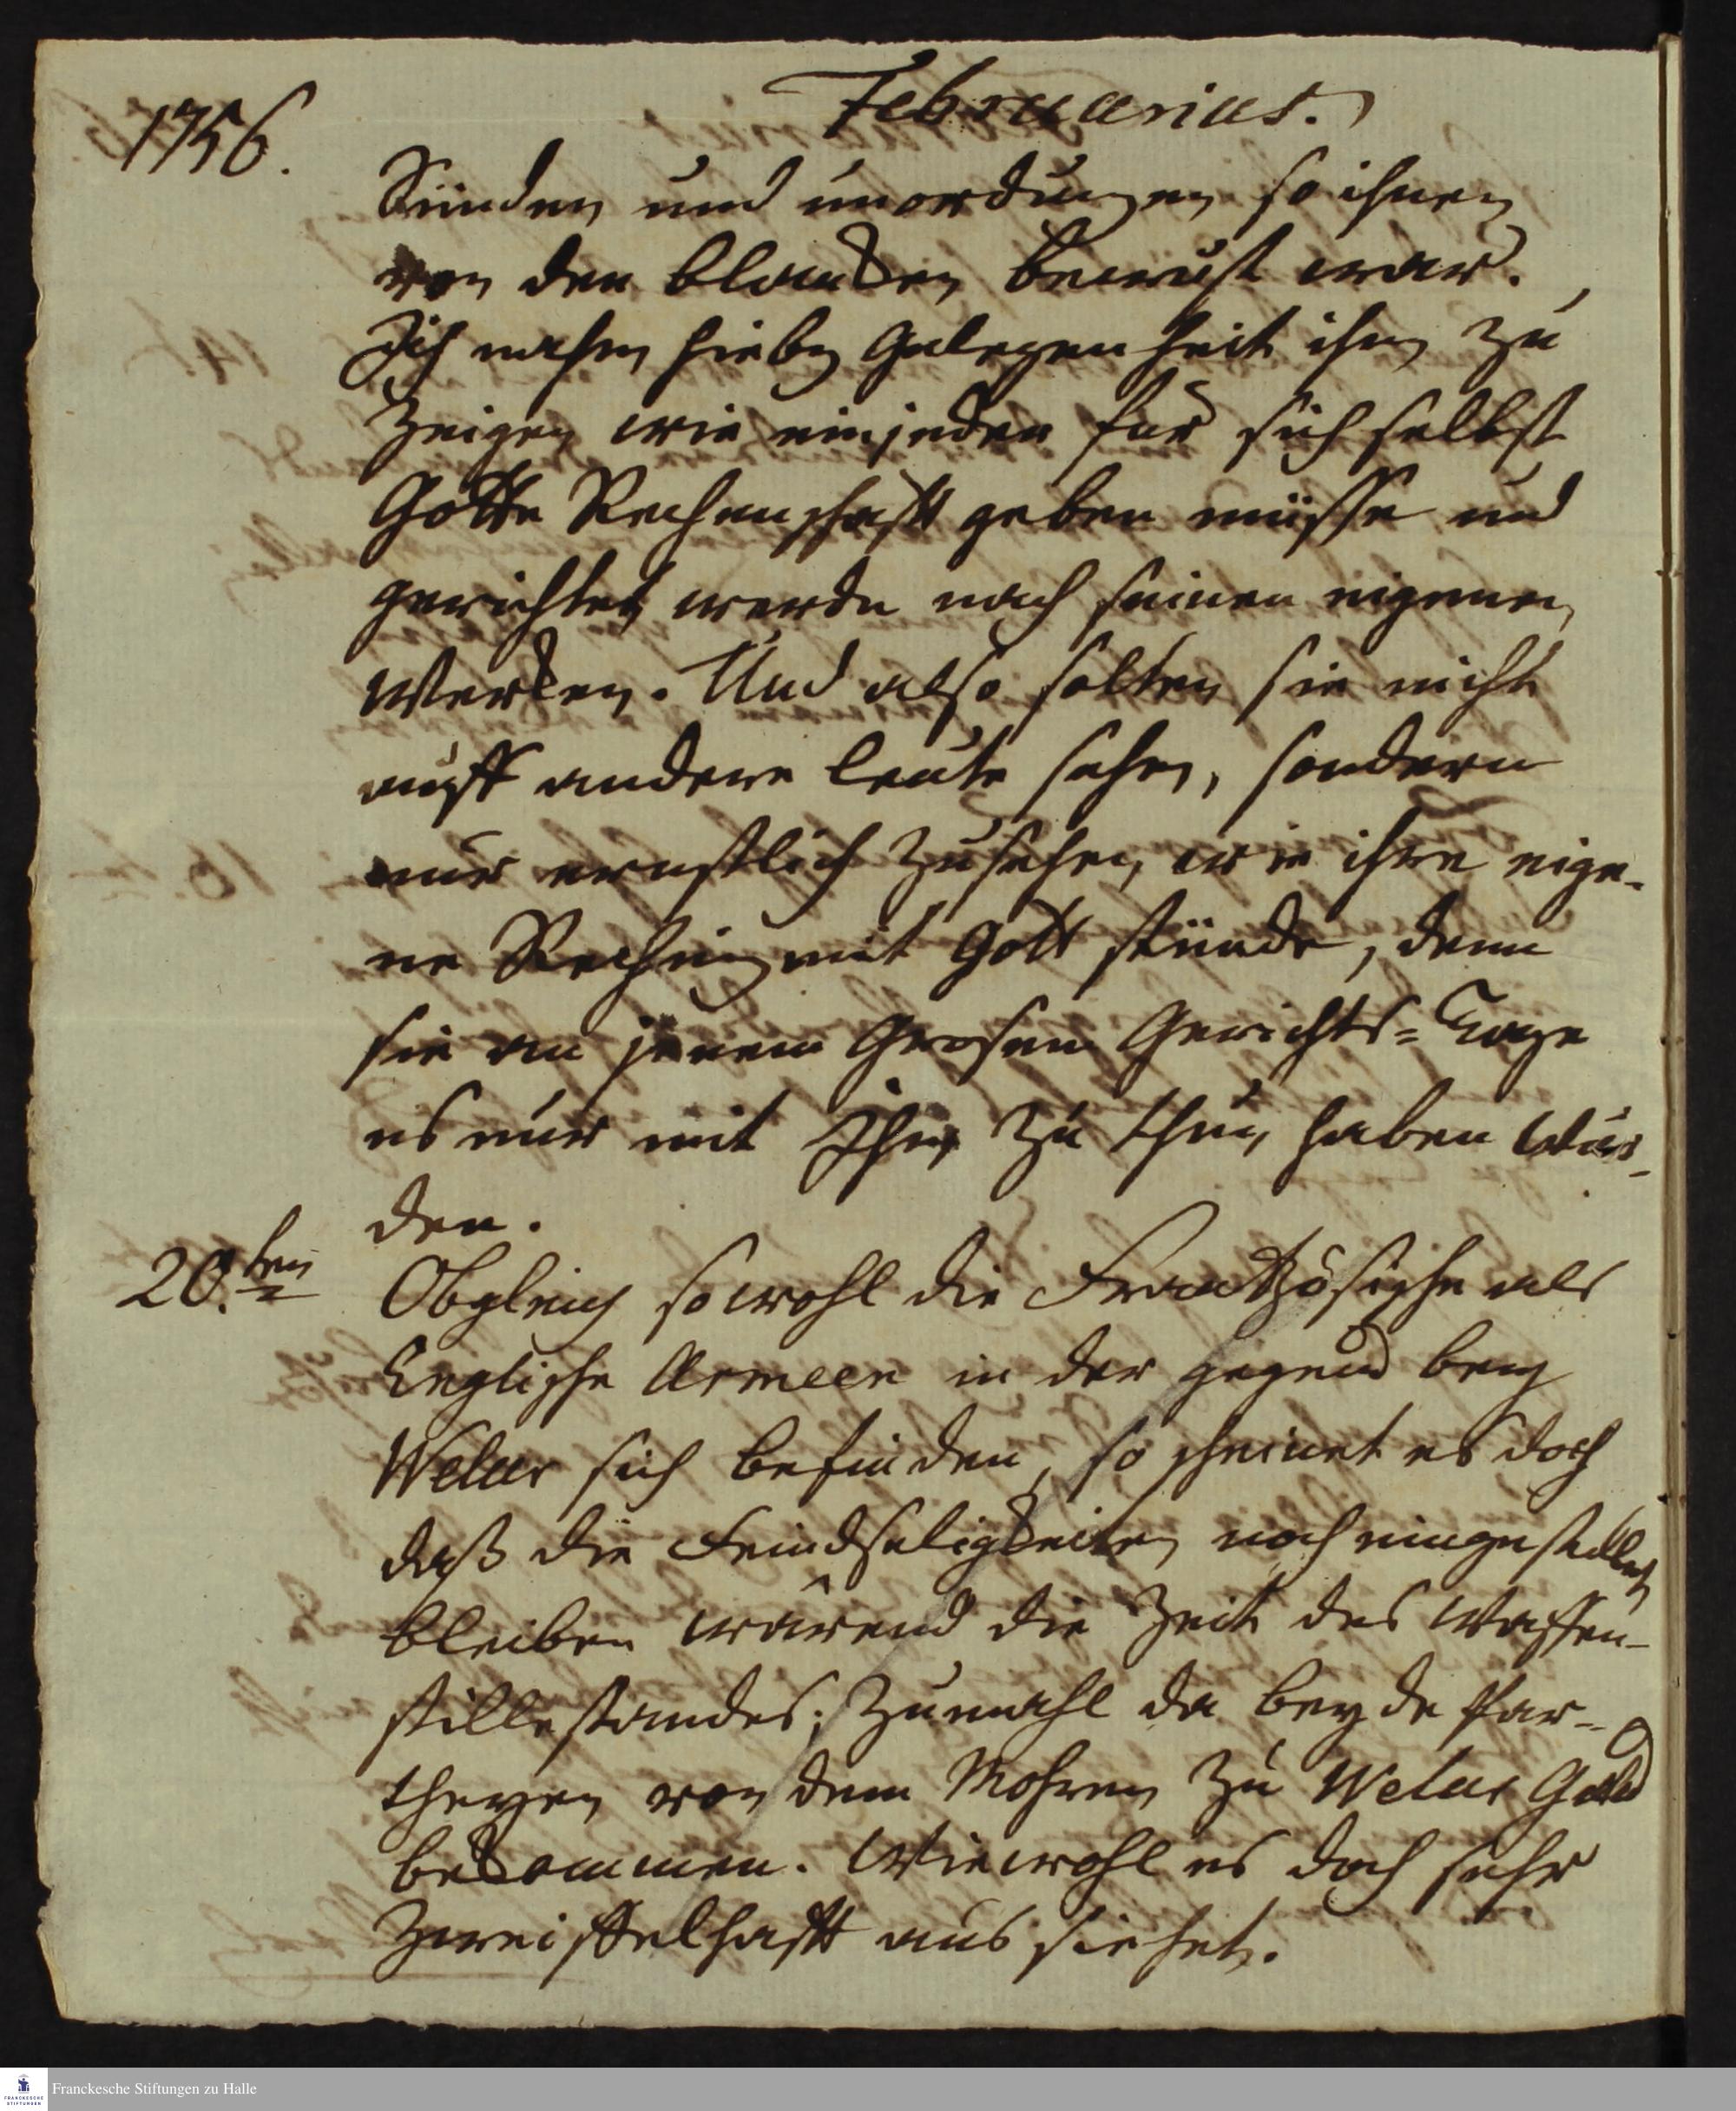 1756.
Februarius.
Sünden und unordnungen so ihnen
von den blanken bewust war.
Ich nahm hieby Gelegenheit ihm zu
Zeigen wie ein jeder für sich selbst
Gotte Rechenschafft geben müsse und
gerichtet werde nach seinen eigenen
Werken. Und also solten sie nicht
auff andere leute sehen, sondern
nur ernstlich zusehen, wie ihre eige-
ne Rechnung mit Gott stünde, denn
sie an jenem Grosen Gerichts=Tage
es nur mit Ihm zu thun haben wür-
den.
20.ten
Obgleich sowohl die Frantzösische als
Englische Armeen in der gegend bey
Welur sich befinden, so scheinet es doch
daß die Feindseligkeiten noch eingestellet
bleiben wärend die Zeit des Waffen-
stillestandes; Zumahl da beyde Par-
theyen von dem Mohren zu Welur Geld
bekommen. Wiewohl es doch sehr
Zweiffelhafft aus siehet.
Franckesche Stiftungen zu Halle
FRANCKESCHE
STIFTUNGEN